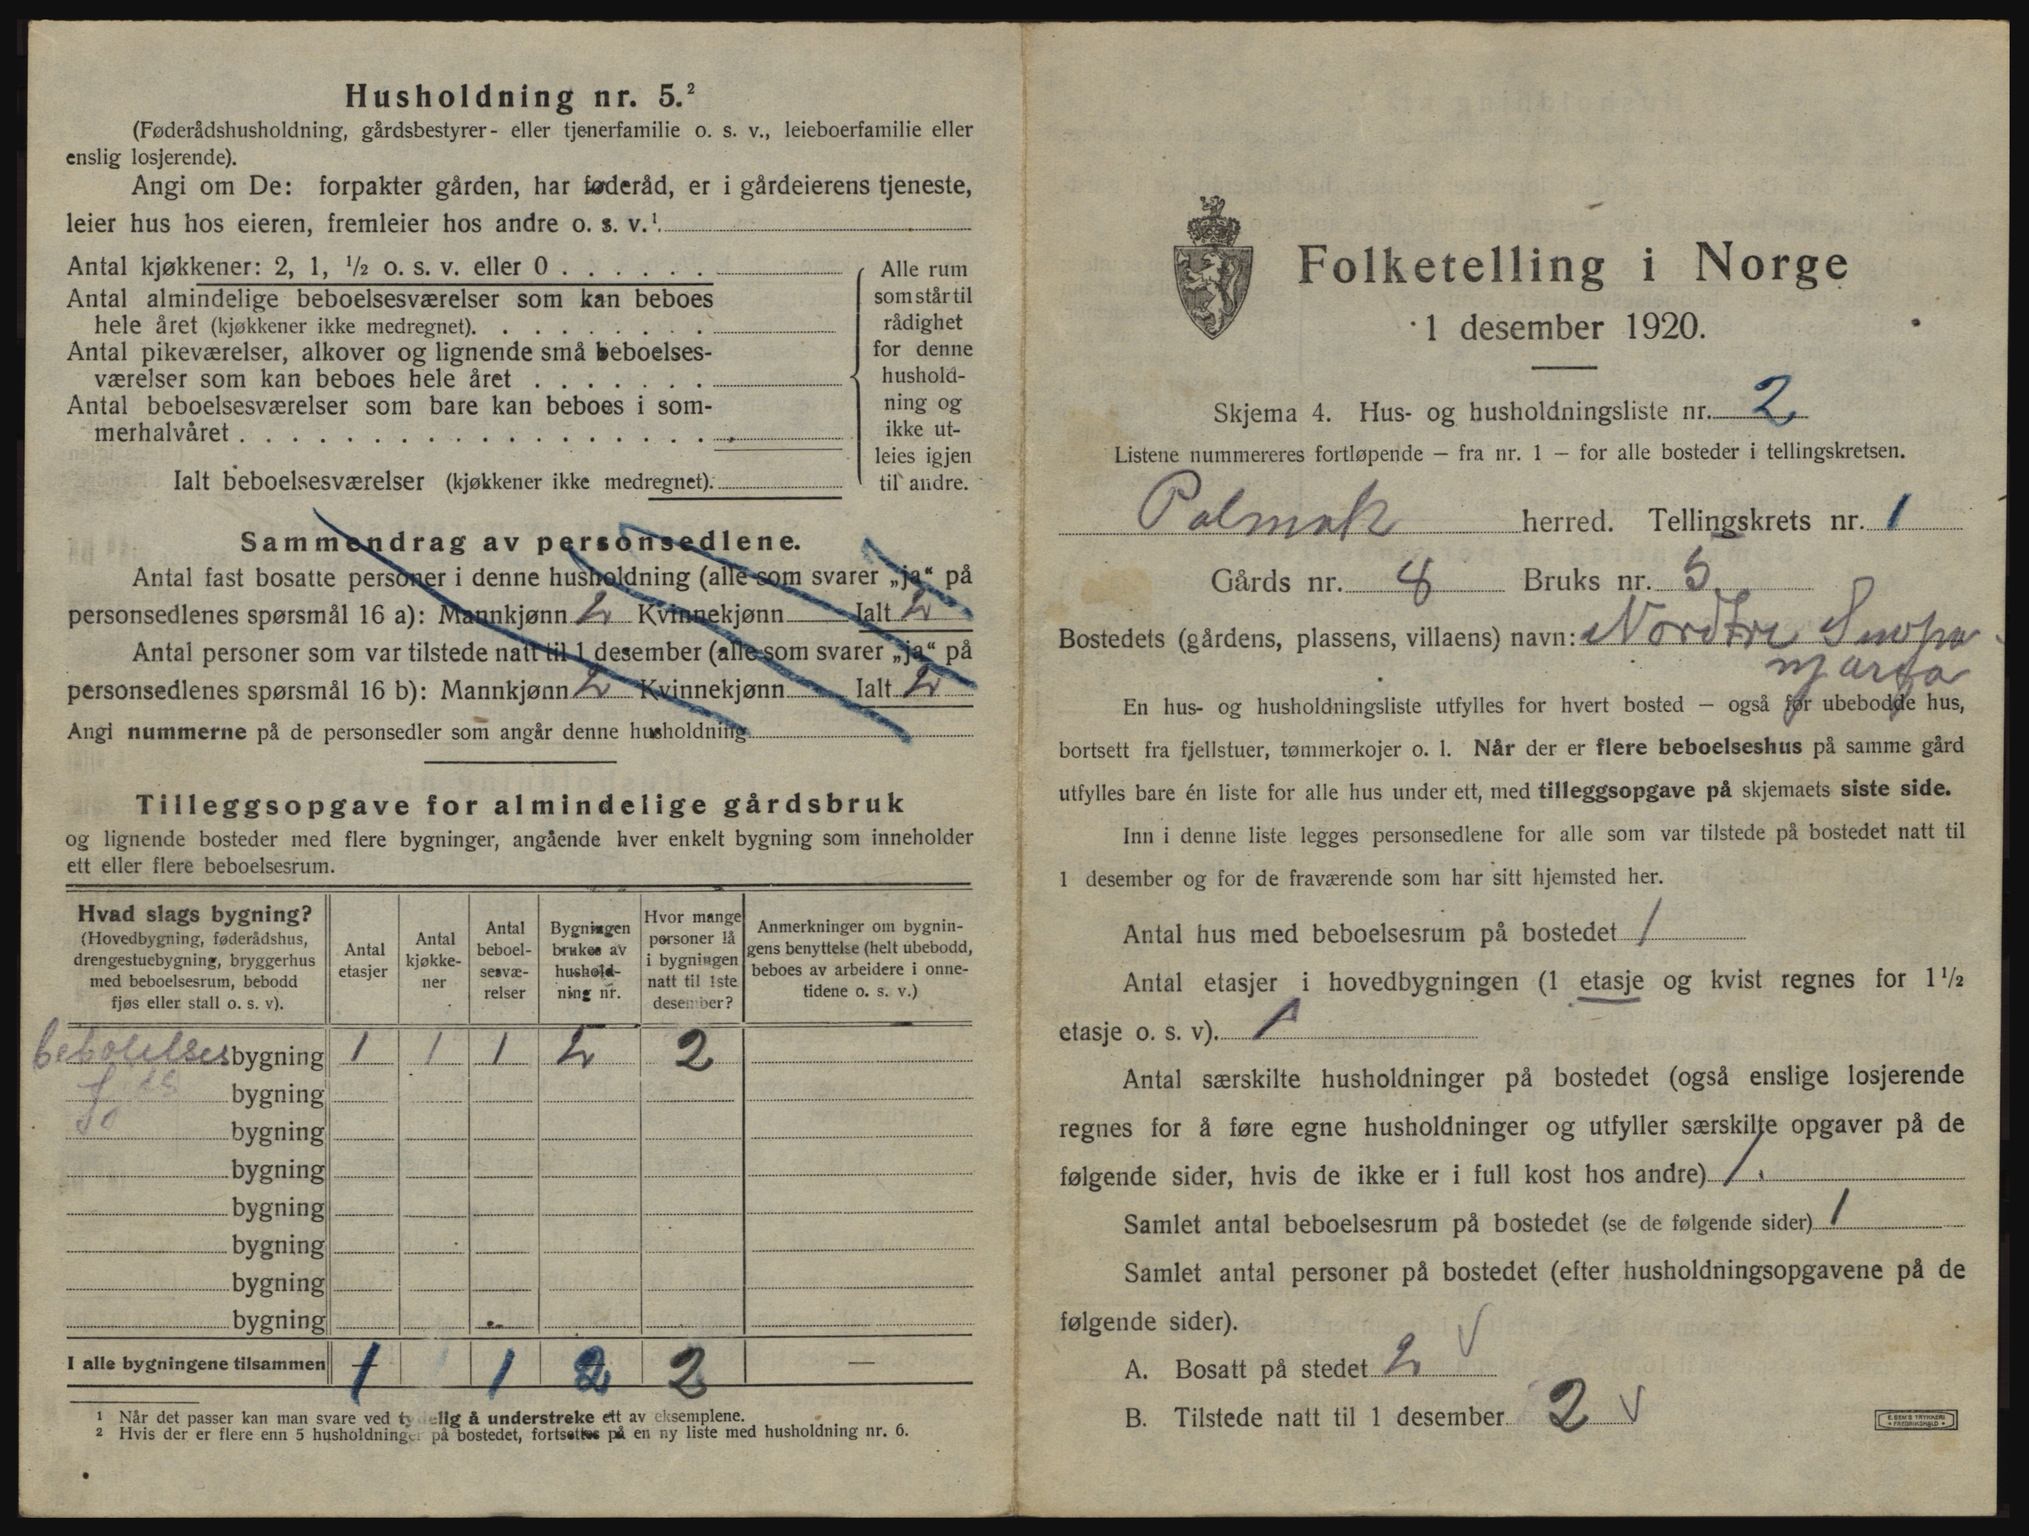 Husholdning nr. 5.²
(Føderådshusholdning, gårdsbestyrer- eller tjenerfamilie o. s. v., leieboerfamilie eller
enslig losjerende).
Angi om De: forpakter gården, har føderåd, er i gårdeierens tjeneste,
leier hus hos eieren, fremleier hos andre o. s. v.¹
Antal kjøkkener: 2, 1, ½ o. s. v. eller 0
Antal almindelige beboelsesværelser som kan beboes
hele året (kjøkkener ikke medregnet).
Antal pikeværelser, alkover og lignende små beboelses-
værelser som kan beboes hele året
Antal beboelsesværelser som bare kan beboes i som-
merhalvåret
Ialt beboelsesværelser (kjøkkener ikke medregnet).
Alle rum
som står til
rådighet
for denne
hushold-
ning og
ikke ut-
leies igjen
til andre.
Sammendrag av personsedlene.
Antal fast bosatte personer i denne husholdning (alle som svarer „ja“ på
personsedlenes spørsmål 16 a): Mannkjønn 2 Kvinnekjønn Ialt 2
Antal personer som var tilstede natt til 1 desember (alle som svarer „ja“ på
personsedlenes spørsmål 16 b): Mannkjønn 2 Kvinnekjønn Ialt 2
Angi nummerne på de personsedler som angår denne husholdning
Tilleggsopgave for almindelige gårdsbruk
og lignende bosteder med flere bygninger, angående hver enkelt bygning som inneholder
ett eller flere beboelsesrum.
Hvad slags bygning?
(Hovedbygning, føderådshus,
drengestuebygning, bryggerhus
med beboelsesrum, bebodd
fjøs eller stall o. s. v).
Antal
etasjer
Antal
kjøkke-
ner
Antal
beboel-
sesvæ-
relser
Bygningen
brukes av
hushold-
ning nr.
Hvor mange
personer lå
i bygningen
natt til 1ste
desember?
Anmerkninger om bygnin-
gens benyttelse (helt ubebodd,
beboes av arbeidere i onne-
tidene o. s. v.)
beboelses bygning 1 1 1 2 2
bygning
bygning
bygning
bygning
bygning
bygning
bygning
I alle bygningene tilsammen 1 1 2 2 —
¹ Når det passer kan man svare ved tydelig å understreke ett av eksemplene.
² Hvis der er flere enn 5 husholdninger på bostedet, fortsettes på en ny liste med husholdning nr. 6.
Folketelling i Norge
1 desember 1920.
Skjema 4. Hus- og husholdningsliste nr. 2
Listene nummereres fortløpende — fra nr. 1 — for alle bosteder i tellingskretsen.
Polmak herred. Tellingskrets nr. 1
Gårds nr. 8 Bruks nr. 5
Bostedets (gårdens, plassens, villaens) navn: Nordtre
njarga
En hus- og husholdningsliste utfylles for hvert bosted — også for ubebodde hus,
bortsett fra fjellstuer, tømmerkojer o. l. Når der er flere beboelseshus på samme gård
utfylles bare én liste for alle hus under ett, med tilleggsopgave på skjemaets siste side.
Inn i denne liste legges personsedlene for alle som var tilstede på bostedet natt til
1 desember og for de fraværende som har sitt hjemsted her.
Antal hus med beboelsesrum på bostedet 1
Antal etasjer i hovedbygningen (1 etasje og kvist regnes for 1½
etasje o. s. v). 1
Antal særskilte husholdninger på bostedet (også enslige losjerende
regnes for å føre egne husholdninger og utfyller særskilte opgaver på de
følgende sider, hvis de ikke er i full kost hos andre) 1.
Samlet antal beboelsesrum på bostedet (se de følgende sider) 1
Samlet antal personer på bostedet (efter husholdningsopgavene på de
følgende sider).
A. Bosatt på stedet 2 √
B. Tilstede natt til 1 desember 2 √
E. SEM'S TRYKKERI
FREDRIKSHALD